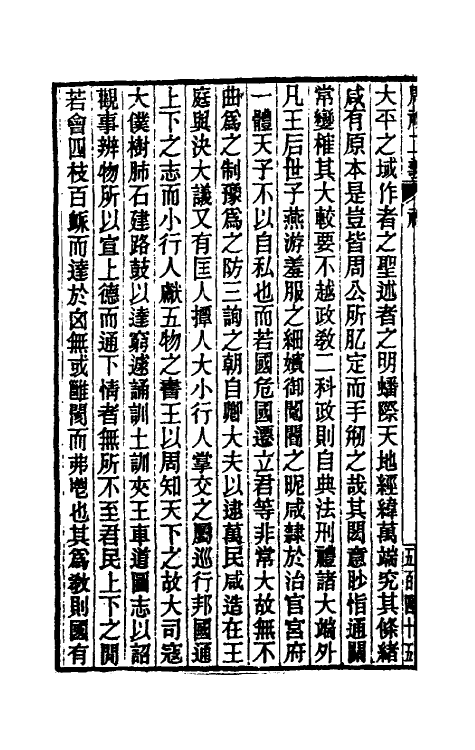 大平之域作者之聖述者之明蟠際天地經緯萬端究其條緒
咸有原本是豈皆周公所肊定而手剏之哉其閎意眇恉通關
常變榷其大較要不越政敎二科政則自典法刑禮諸大端外
凡王后世子燕游羞服之細嬪御閽閹之昵咸隸於治官宮府
一體天子不以自私也而若國危國遷立君等非常大故無不
曲爲之制豫爲之防三詢之朝自卿大夫以逮萬民咸造在王
庭與決大議又有匡人撢人大小行人掌交之屬巡行邦國通
上下之志而小行人獻五物之書王以周知天下之故大司寇
大僕樹肺石建路鼓以達窮遽誦訓土訓夾王車道圖志以詔
觀事辨物所以宣上德而通下情者無所不至君民上下之閒
若會四枝百䘑而達於囟無或雝閡而弗鬯也其爲敎則國有